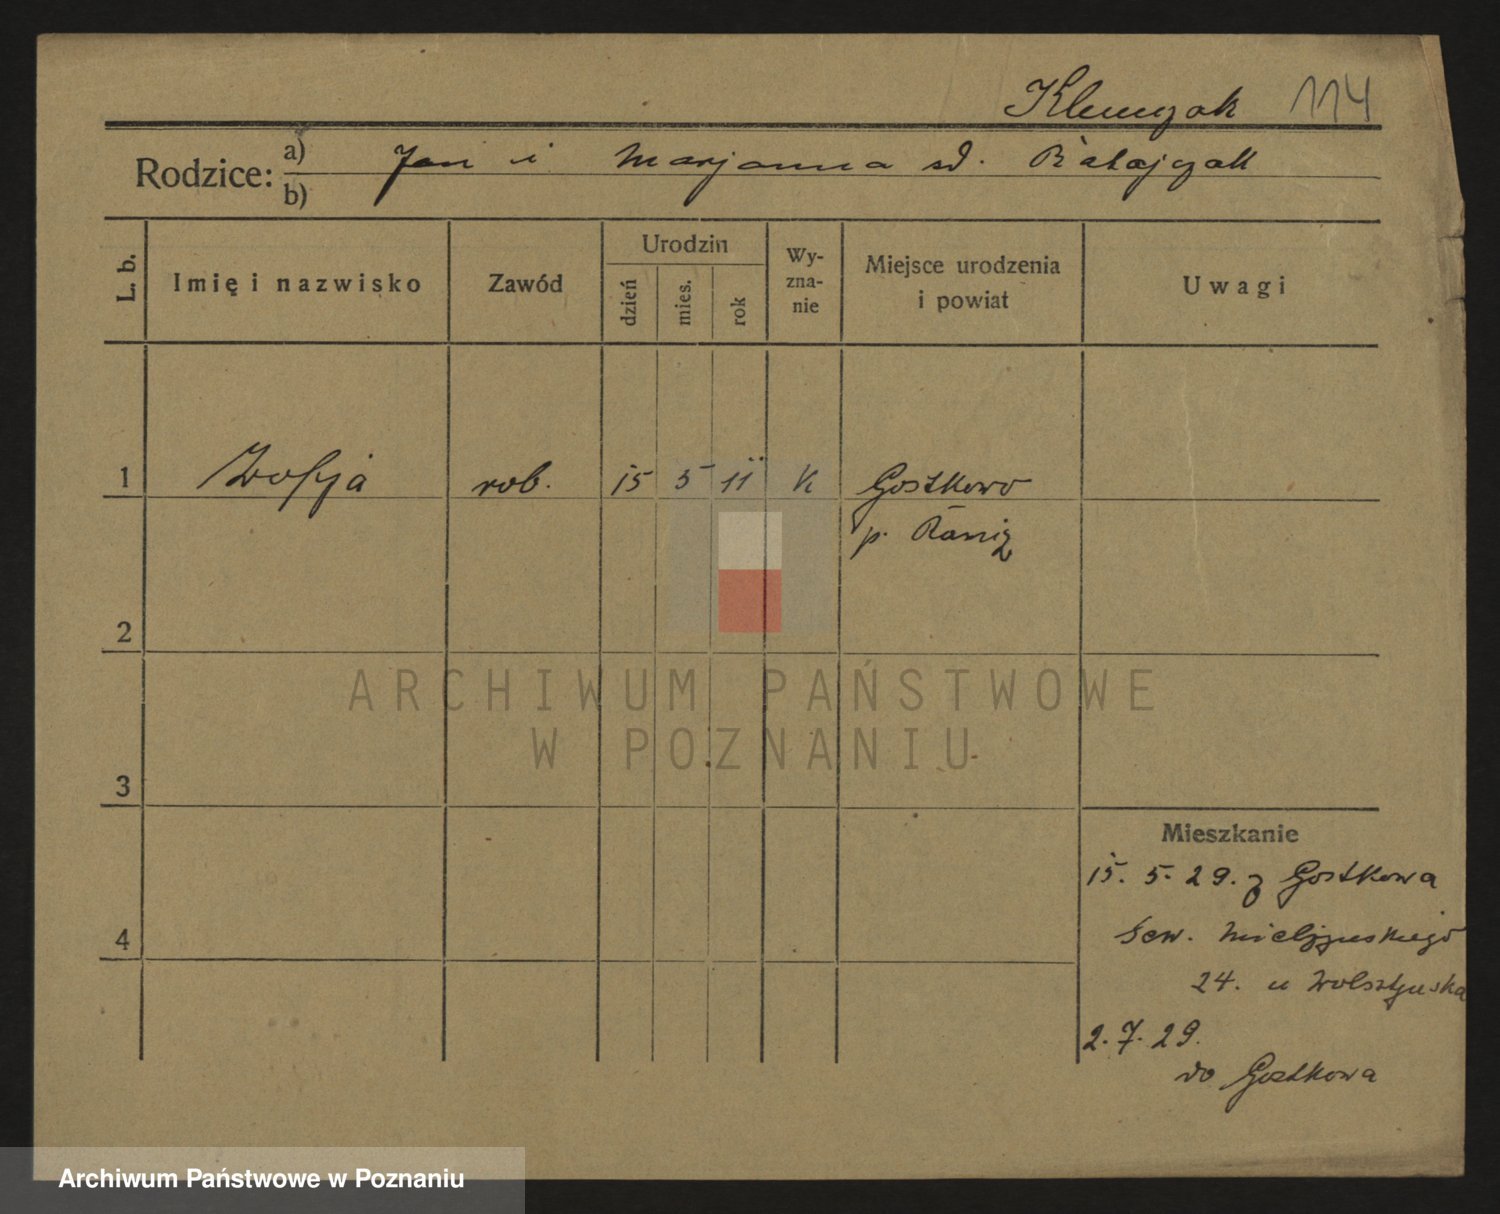 Klemczak 114
Rodzice: a) Jan i Marjanna sd. Ratajczak
b)
L. b. Imię i nazwisko Zawód Urodzin dzień mies. rok Wy-zna-nie Miejsce urodzenia i powiat Uwagi
1 Zofja rob. 15 5 11 K Gostkowo
p.
2
ARCHIWUM PAŃSTWOWE
W POZNANIU
3
Mieszkanie
15. 5. 29. z Gostkowa
4
Sew. Mielżyńskiego
24. u Wolsztyńska
2. 7. 29.
do Gostkowa
Archiwum Państwowe w Poznaniu